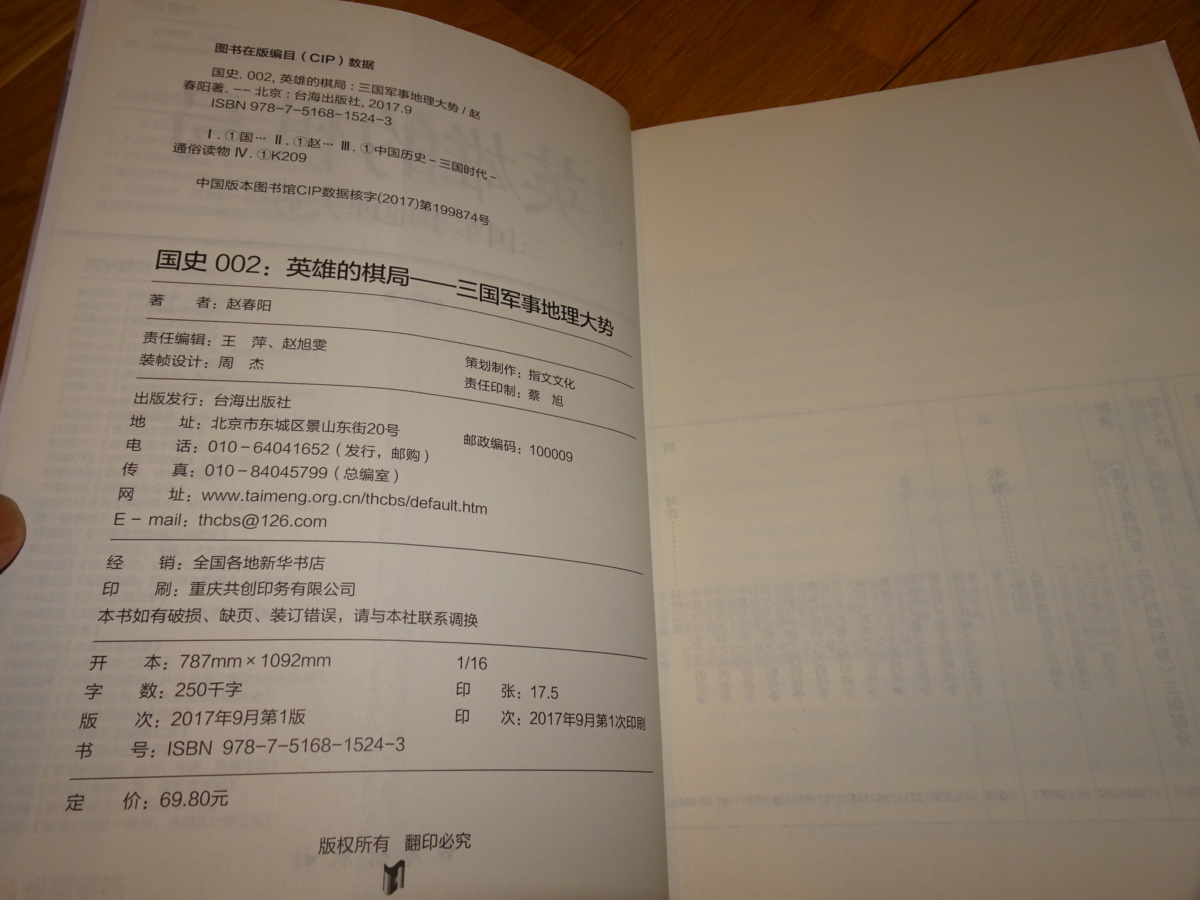 图书在版编目（CIP）数据
国史. 002, 英雄的棋局：三国军事地理大势 / 赵
春阳著. -- 北京：台海出版社, 2017.9
ISBN 978-7-5168-1524-3
Ⅰ. ①国… Ⅱ. ①赵… Ⅲ. ①中国历史－三国时代－
通俗读物 Ⅳ. ①K209
中国版本图书馆CIP数据核字(2017)第199874号
国史 002：英雄的棋局——三国军事地理大势
著　　者：赵春阳
责任编辑：王　萍、赵旭雯　　策划制作：指文文化
装帧设计：周　杰　　责任印制：蔡　旭
出版发行：台海出版社
地　　址：北京市东城区景山东街20号　　邮政编码：100009
电　　话：010－64041652（发行，邮购）
传　　真：010－84045799（总编室）
网　　址：www.taimeng.org.cn/thcbs/default.htm
E－mail：thcbs@126.com
经　　销：全国各地新华书店
印　　刷：重庆共创印务有限公司
本书如有破损、缺页、装订错误，请与本社联系调换
开　　本：787mm×1092mm　　1/16
字　　数：250千字　　印　　张：17.5
版　　次：2017年9月第1版　　印　　次：2017年9月第1次印刷
书　　号：ISBN 978-7-5168-1524-3
定　　价：69.80元
版权所有　翻印必究